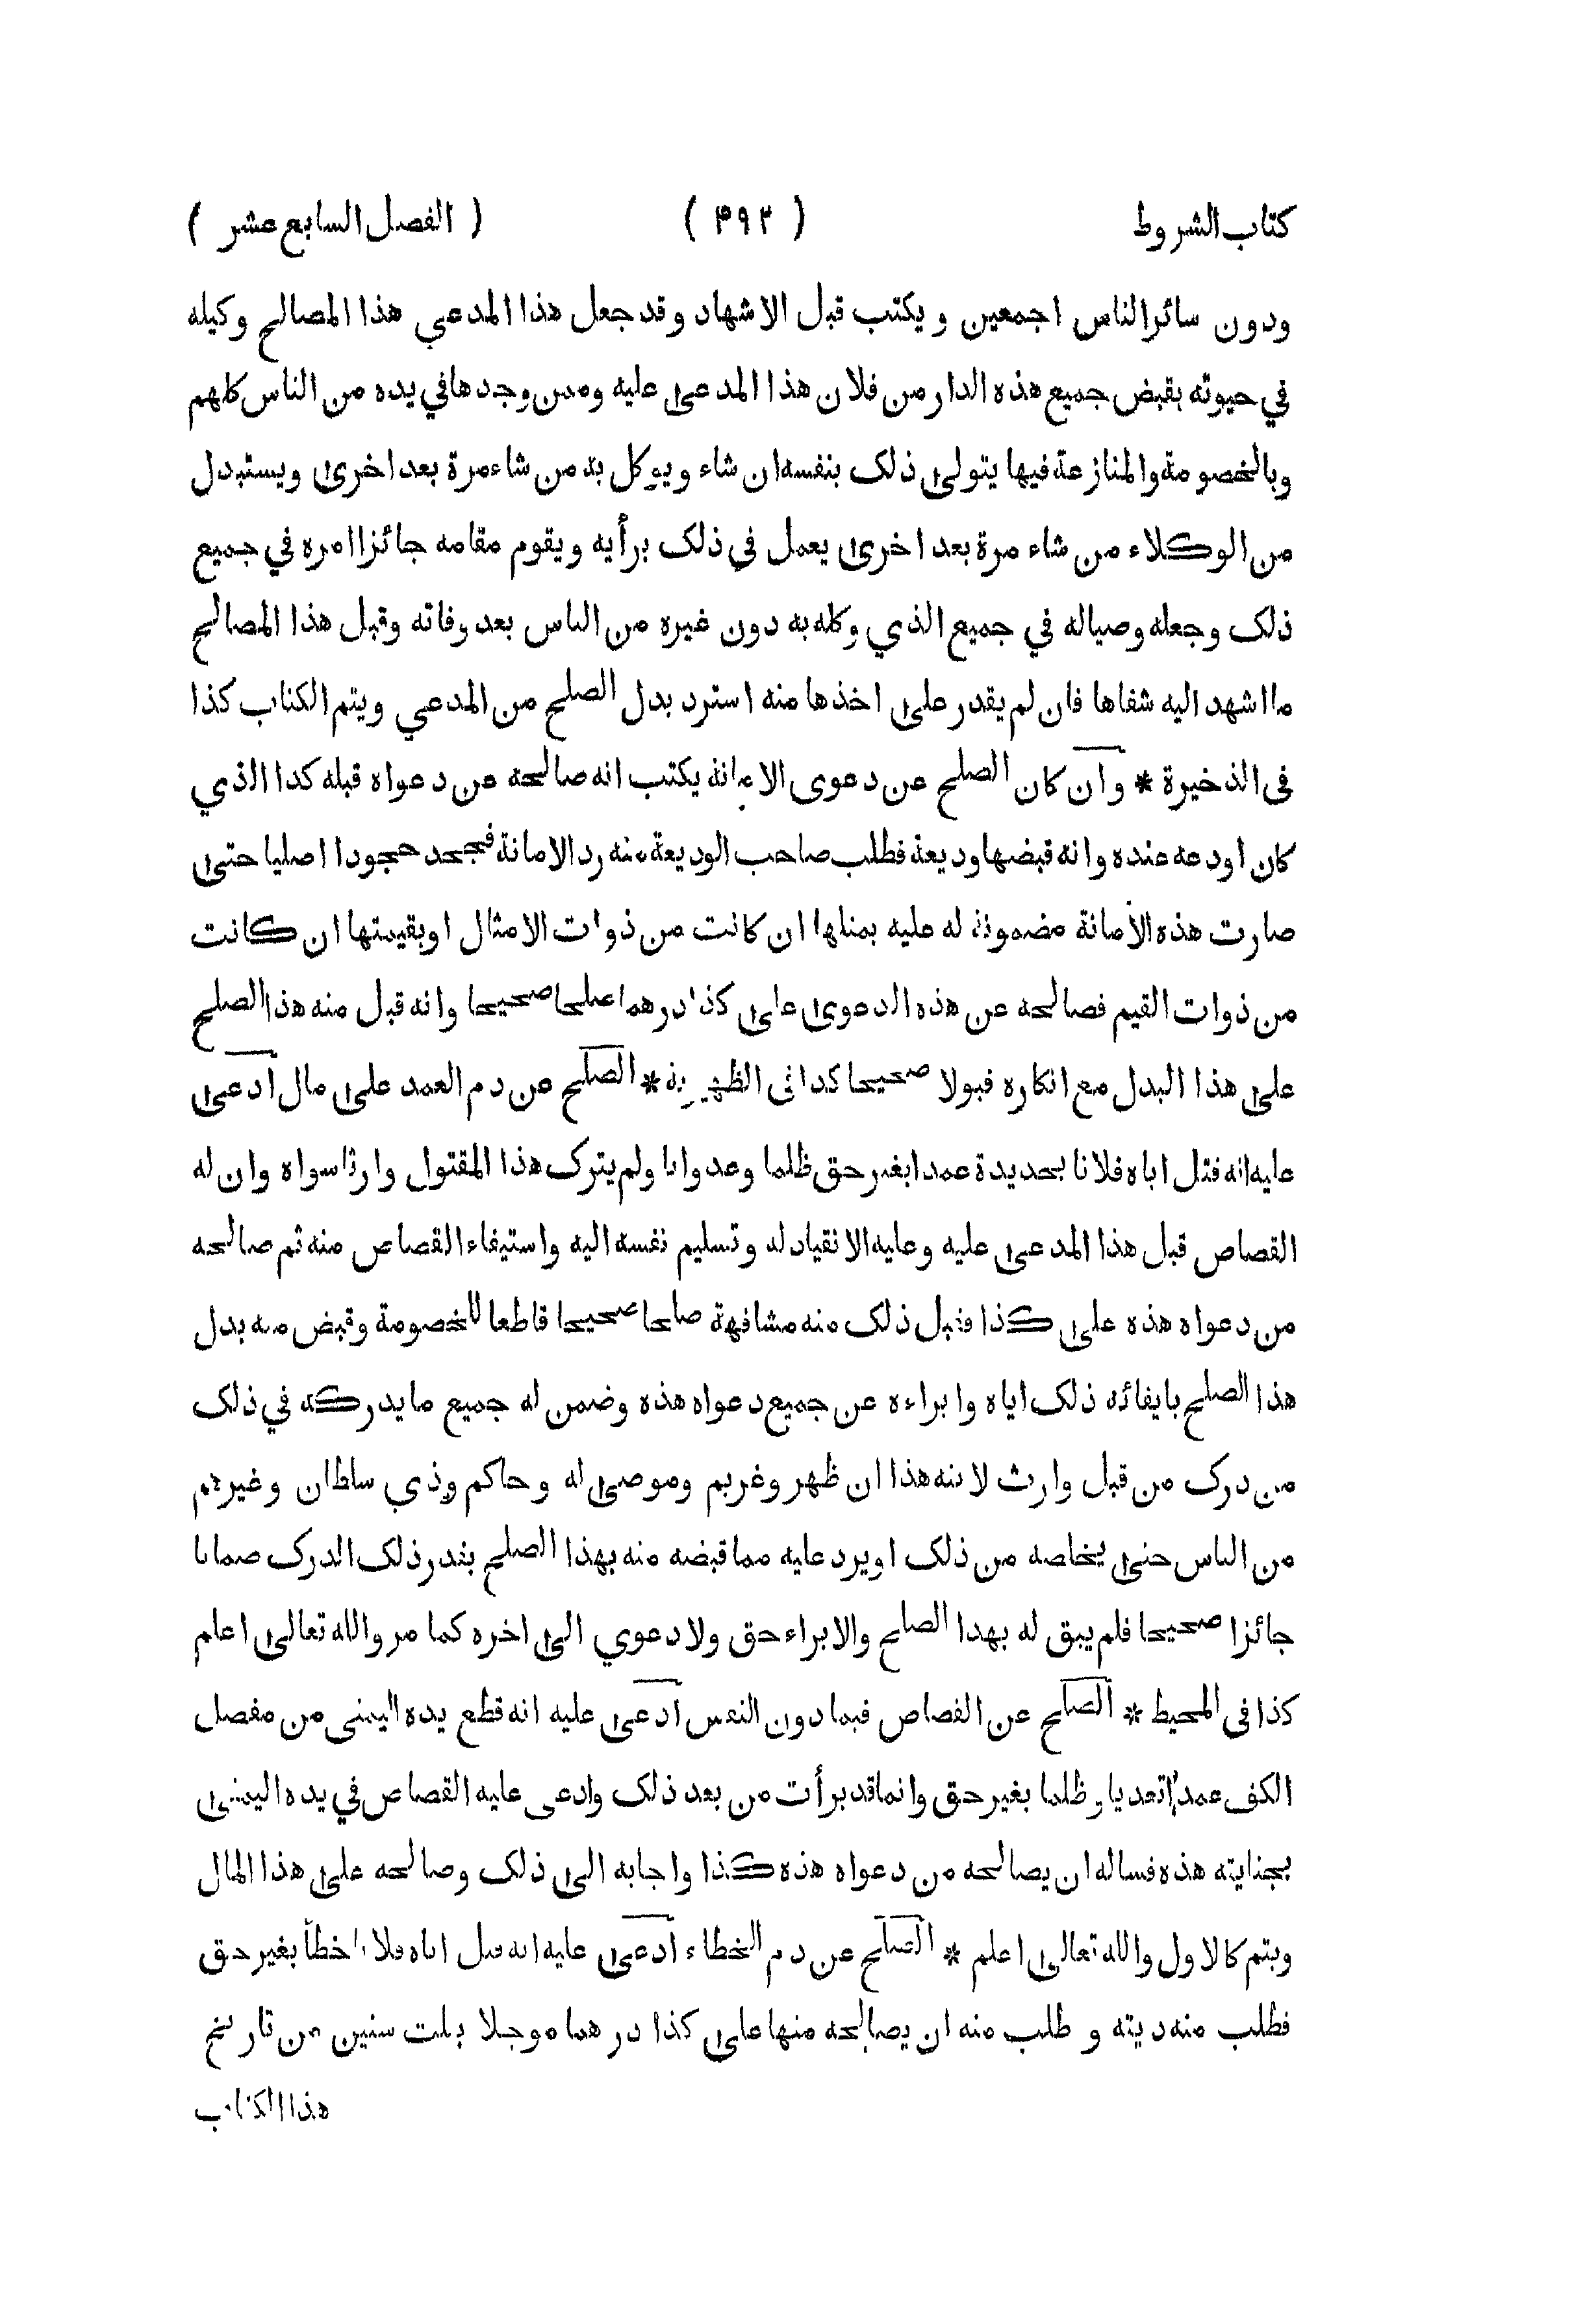 كتاب الشروط ( ۴۹۲ ) ( الفصل السابع عشر )
ودون سائر الناس اجمعين ويكتب قبل الاشهاد وقد جعل هذا المدعي هذا المصالح وكيله
في حيوته بقبض جميع هذه الدار من فلان هذا المدعى عليه وممن وجدها في يده من الناس كلهم
وبالخصومة والمنازعة فيها يتولى ذلك بنفسه ان شاء ويوكل به من شاء مرة بعد اخرى ويستبدل
من الوكلاء من شاء مرة بعد اخرى يعمل في ذلك برأيه ويقوم مقامه جائزا امره في جميع
ذلك وجعله وصياله في جميع الذي وكله به دون غيره من الناس بعد وفاته وقبل هذا المصالح
ما اشهد اليه شفاها فان لم يقدر على اخذها منه استرد بدل الصلح من المدعي ويتم الكتاب كذا
فى الذخيرة * وان كان الصلح عن دعوى الامانة يكتب انه صالحه عن دعواه قبله كذا الذي
كان اودعه عنده وانه قبضها وديعة فطلب صاحب الوديعة منه رد الامانة فجحد حجودا اصليا حتى
صارت هذه الأمانة مضمونة له عليه بمثلها ان كانت من ذوات الامثال اوبقيمتها ان كانت
من ذوات القيم فصالحه عن هذه الدعوى على كذا درهما صلحا صحيحا وانه قبل منه هذا الصلح
على هذا البدل مع انكاره قبولا صحيحا كذا في الظهيرية * الصلح عن دم العمد على مال ادعى
عليه انه قتل اباه فلانا بحديدة عمدا بغير حق ظلما وعدوانا ولم يترك هذا المقتول وارثا سواه وان له
القصاص قبل هذا المدعى عليه وعليه الانقياد له وتسليم نفسه اليه واستيفاء القصاص منه ثم صالحه
من دعواه هذه على كذا فقبل ذلك منه مشافهة صلحا صحيحا قاطعا للخصومة وقبض منه بدل
هذا الصلح بايفائه ذلك اياه وابراءه عن جميع دعواه هذه وضمن له جميع ما يدركه في ذلك
من درك من قبل وارث لابنه هذا ان ظهر وغريم وموصى له وحاكم وذي سلطان وغيرهم
من الناس حتى يخلصه من ذلك او يرد عليه مما قبضه منه بهذا الصلح بقدر ذلك الدرك ضمانا
جائزا صحيحا فلم يبق له بهذا الصلح والابراء حق ولا دعوي الى اخره كما مر والله تعالى اعلم
كذا فى المحيط * الصلح عن القصاص فيما دون النفس ادعى عليه انه قطع يده اليمنى من مفصل
الكف عمدا تعديا وظلما بغير حق وانما قد برأت من بعد ذلك وادعى عليه القصاص في يده اليمنى
بجنايته هذه فساله ان يصالحه من دعواه هذه كذا واجابه الى ذلك وصالحه على هذا المال
ويتم كالاول والله تعالى اعلم * الصلح عن دم الخطاء ادعى عليه انه قتل اباه فلانا خطأ بغير حق
فطلب منه ديته و طلب منه ان يصالحه منها على كذا درهما موجلا بثلث سنين من تاريخ
هذا الكتاب